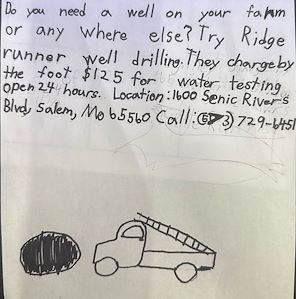 Do you need a well on your farm
or any where else? Try Ridge
runner well drilling. They charge by
the foot, $125 for water testing
open 24 hours. Location: 1600 Senic River's
Blvd, Salem, Mo 65560 Call: (573) 729-6451